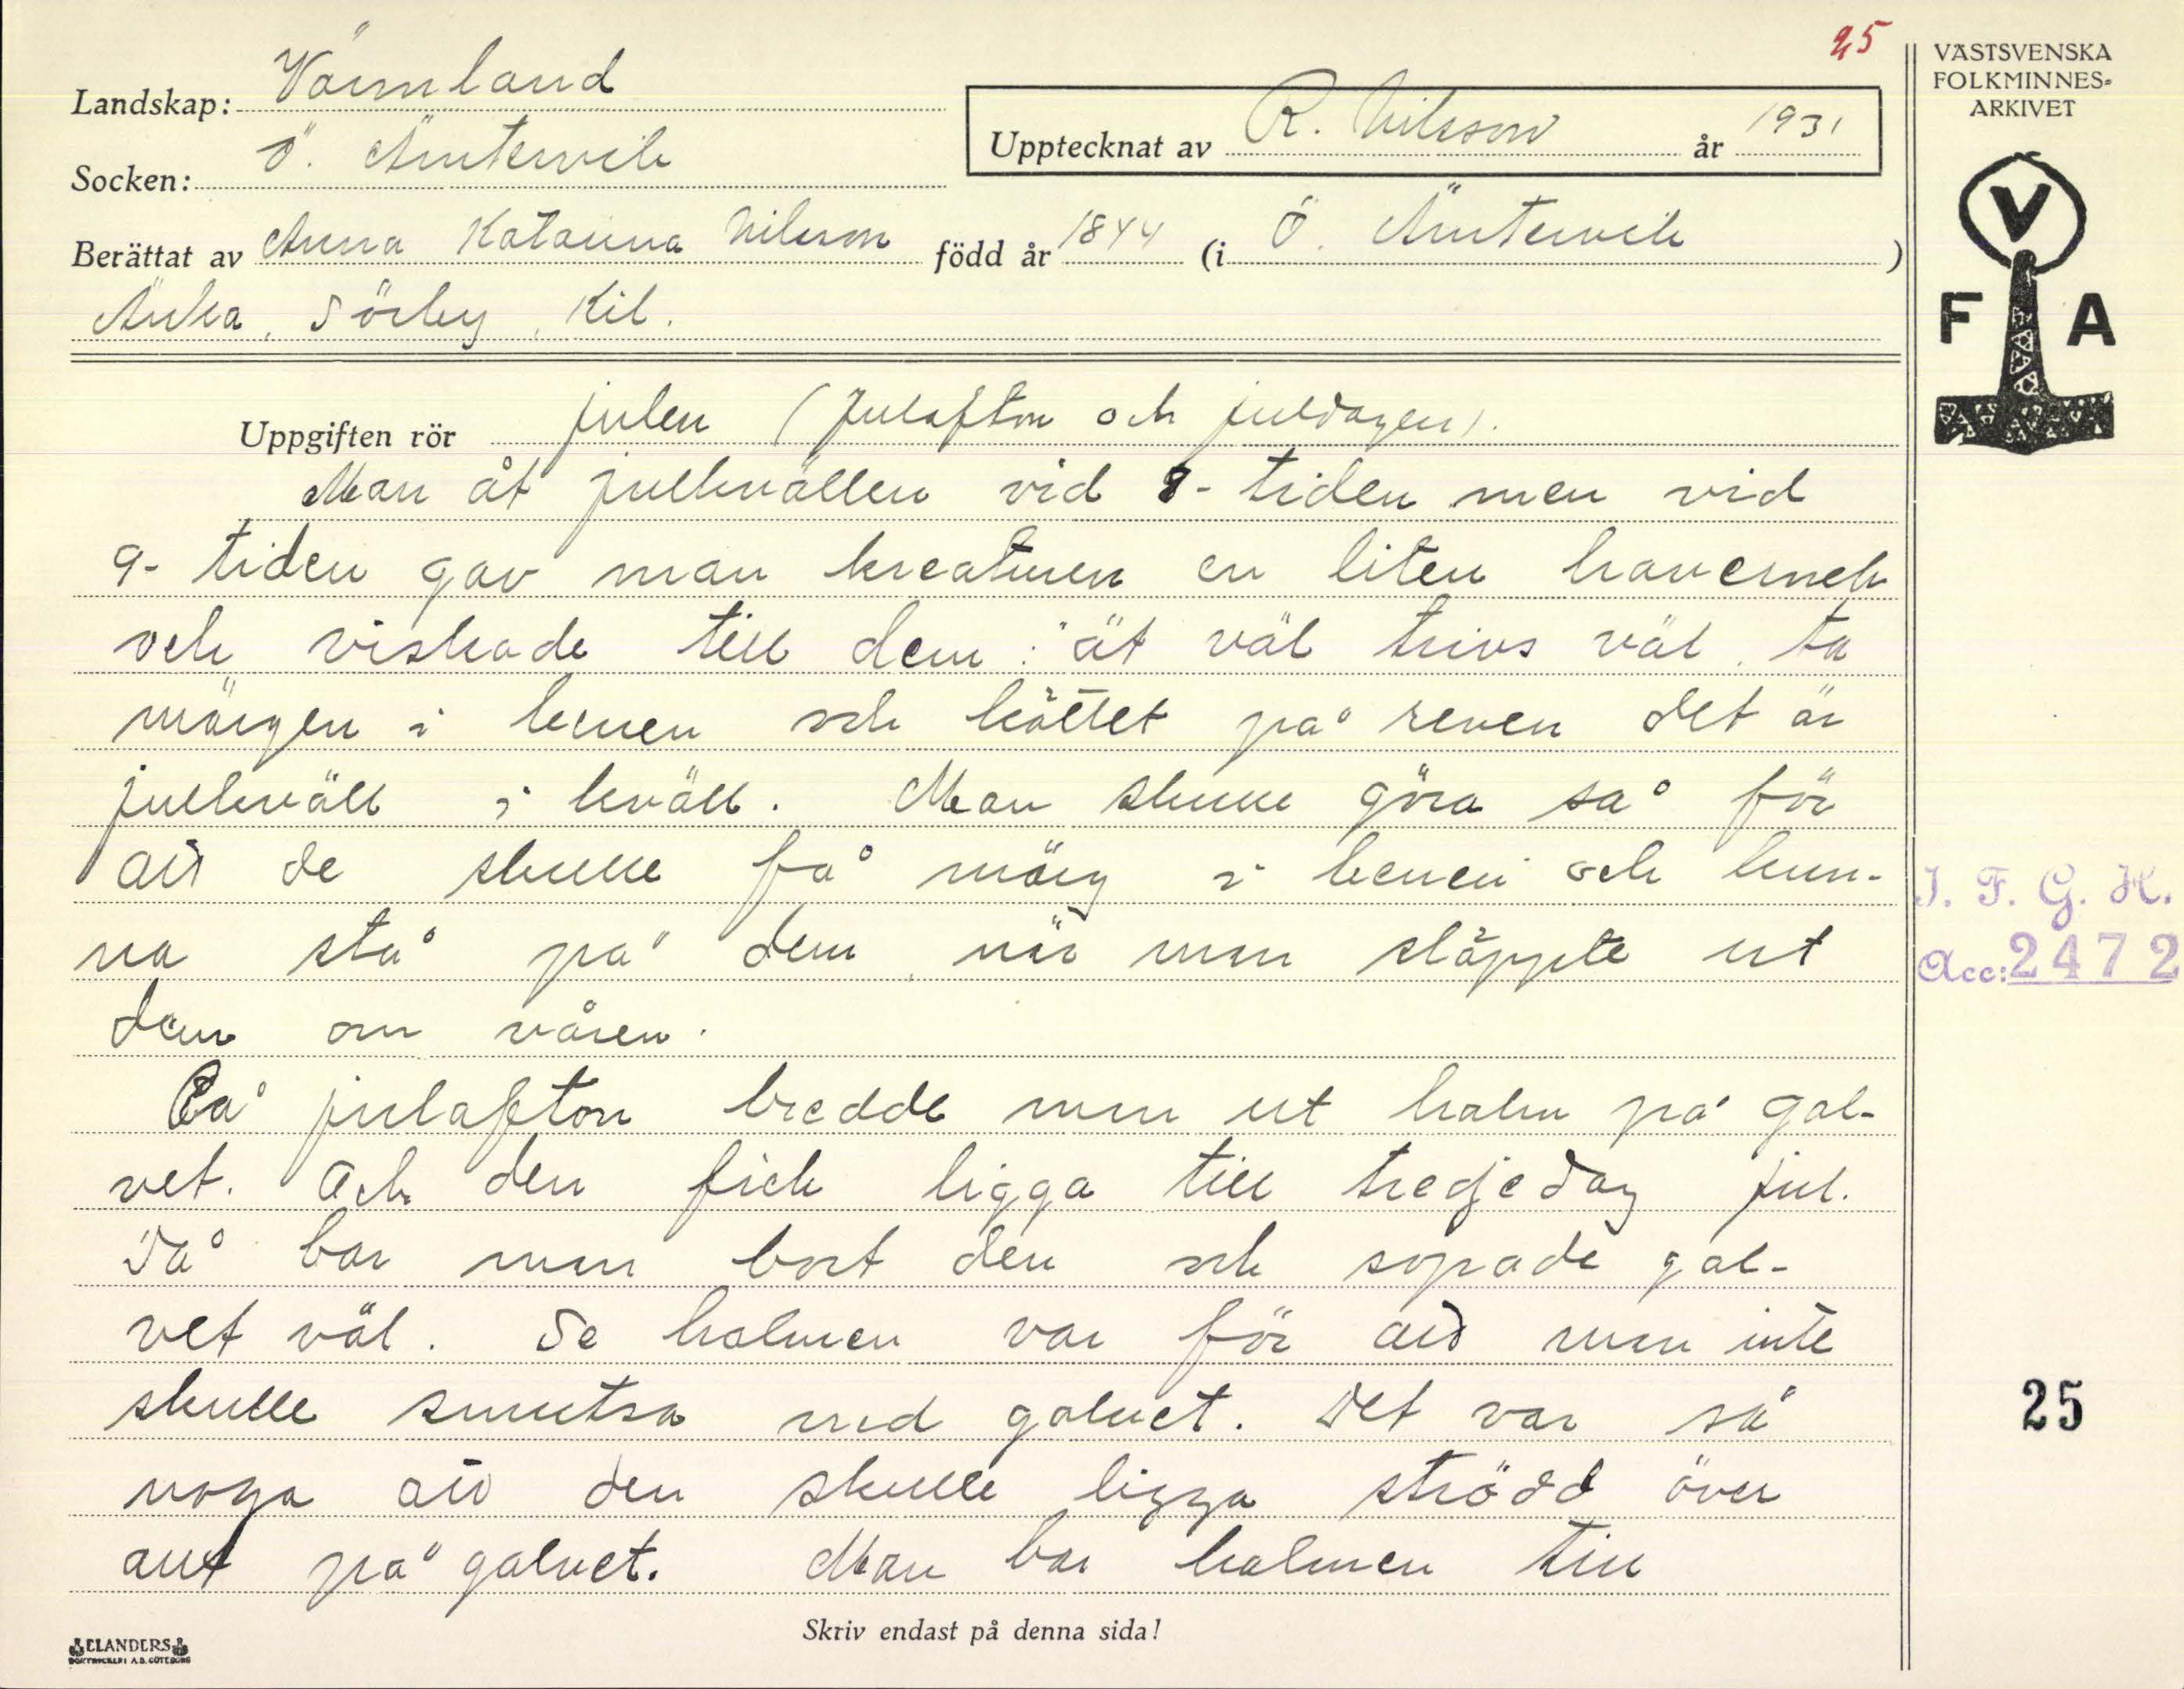 25
VÄSTSVENSKA
FOLKMINNES-
ARKIVET
Landskap: Värmland
Upptecknat av R. Nilsson år 1931
Socken: Ö. Ämtervik
Berättat av Anna Katarina Nilsson född år 1844 (i Ö. Ämtervik )
Änka, Sörby, Kil.
V F A
Uppgiften rör julen (Julafton och juldagen).
Man åt julkvällen vid 8-tiden men vid
9-tiden gav man kreaturen en liten havernek
och viskade till dem: "ät väl trivs väl, ta
märgen i benen och köttet på reven det är
julkväll i kväll. Man skulle göra så för
att de skulle få märg i benen och kun-
na stå på dem, när man släppte ut
dem om våren.
På julafton bredde man ut halm på gol-
vet. Och den fick ligga till tredjedag jul.
Då bar man bort den och sopade gol-
vet väl. Se halmen var för att man inte
skulle smutsa ned golvet. Det var så
noga att den skulle ligga strödd över
allt på golvet. Man bar halmen till
Skriv endast på denna sida!
I. F. G. H.
Acc: 2472
25
ELANDERS
BOKTRYCKERI A.B. GÖTEBORG